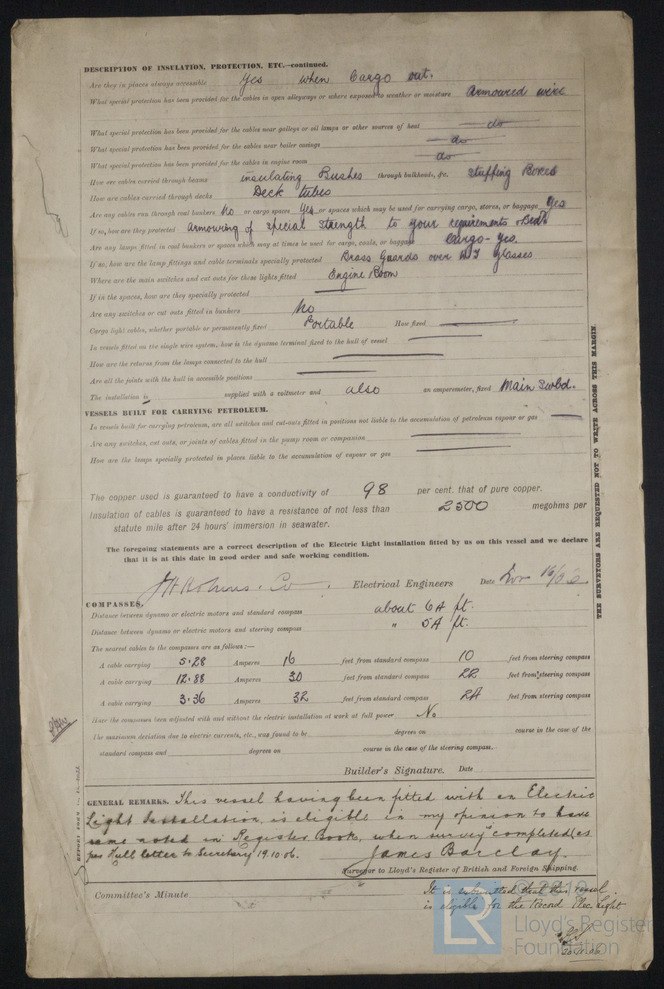 DESCRIPTION OF INSULATION, PROTECTION, ETC.—continued.
Are they in places always accessible Yes when Cargo out.
What special protection has been provided for the cables in open alleyways or where exposed to weather or moisture Armoured wire
What special protection has been provided for the cables near galleys or oil lamps or other sources of heat do
What special protection has been provided for the cables near boiler casings do
What special protection has been provided for the cables in engine room do
How are cables carried through beams insulating Bushes through bulkheads, &c. Stuffing Boxes
How are cables carried through decks Deck tubes
Are any cables run through coal bunkers No or cargo spaces Yes or spaces which may be used for carrying cargo, stores, or baggage Yes
If so, how are they protected Armouring of special strength to your requirements
Are any lamps fitted in coal bunkers or spaces which may at times be used for cargo, coals, or baggage Cargo-Yes.
If so, how are the lamp fittings and cable terminals specially protected Brass Guards over WT Glasses
Where are the main switches and cut outs for these lights fitted Engine Room
If in the spaces, how are they specially protected
Are any switches or cut outs fitted in bunkers No
Cargo light cables, whether portable or permanently fixed Portable How fixed
In vessels fitted on the single wire system, how is the dynamo terminal fixed to the hull of vessel
How are the returns from the lamps connected to the hull
Are all the joints with the hull in accessible positions
The installation is supplied with a voltmeter and also an amperemeter, fixed Main Swbd.
VESSELS BUILT FOR CARRYING PETROLEUM.
In vessels built for carrying petroleum, are all switches and cut-outs fitted in positions not liable to the accumulation of petroleum vapour or gas
Are any switches, cut outs, or joints of cables fitted in the pump room or companion
How are the lamps specially protected in places liable to the accumulation of vapour or gas
The copper used is guaranteed to have a conductivity of 98 per cent. that of pure copper.
Insulation of cables is guaranteed to have a resistance of not less than 2500 megohms per
statute mile after 24 hours' immersion in seawater.
The foregoing statements are a correct description of the Electric Light installation fitted by us on this vessel and we declare
that it is at this date in good order and safe working condition.
Co Electrical Engineers Date Nov 16/06
COMPASSES.
Distance between dynamo or electric motors and standard compass about 64 ft.
Distance between dynamo or electric motors and steering compass " 54 ft.
The nearest cables to the compasses are as follows:—
A cable carrying 5.28 Amperes 16 feet from standard compass 10 feet from steering compass
A cable carrying 12.88 Amperes 30 feet from standard compass 22 feet from steering compass
A cable carrying 3.36 Amperes 32 feet from standard compass 24 feet from steering compass
Have the compasses been adjusted with and without the electric installation at work at full power No
The maximum deviation due to electric currents, etc., was found to be degrees on course in the case of the
standard compass and degrees on course in the case of the steering compass.
Builder's Signature. Date
GENERAL REMARKS. This vessel having been fitted with an Electric
Light Installation, is eligible in my opinion to have
same noted in Register Book, when survey completed (as
per Hull letter to Secretary 19.10.06.
James Barclay.
Surveyor to Lloyd's Register of British and Foreign Shipping.
Committee's Minute
It is submitted that this vessel
is eligible for the Record Elec. Light
20.11.06
THE SURVEYORS ARE REQUESTED NOT TO WRITE ACROSS THIS MARGIN.
Lloyd's Register
Foundation